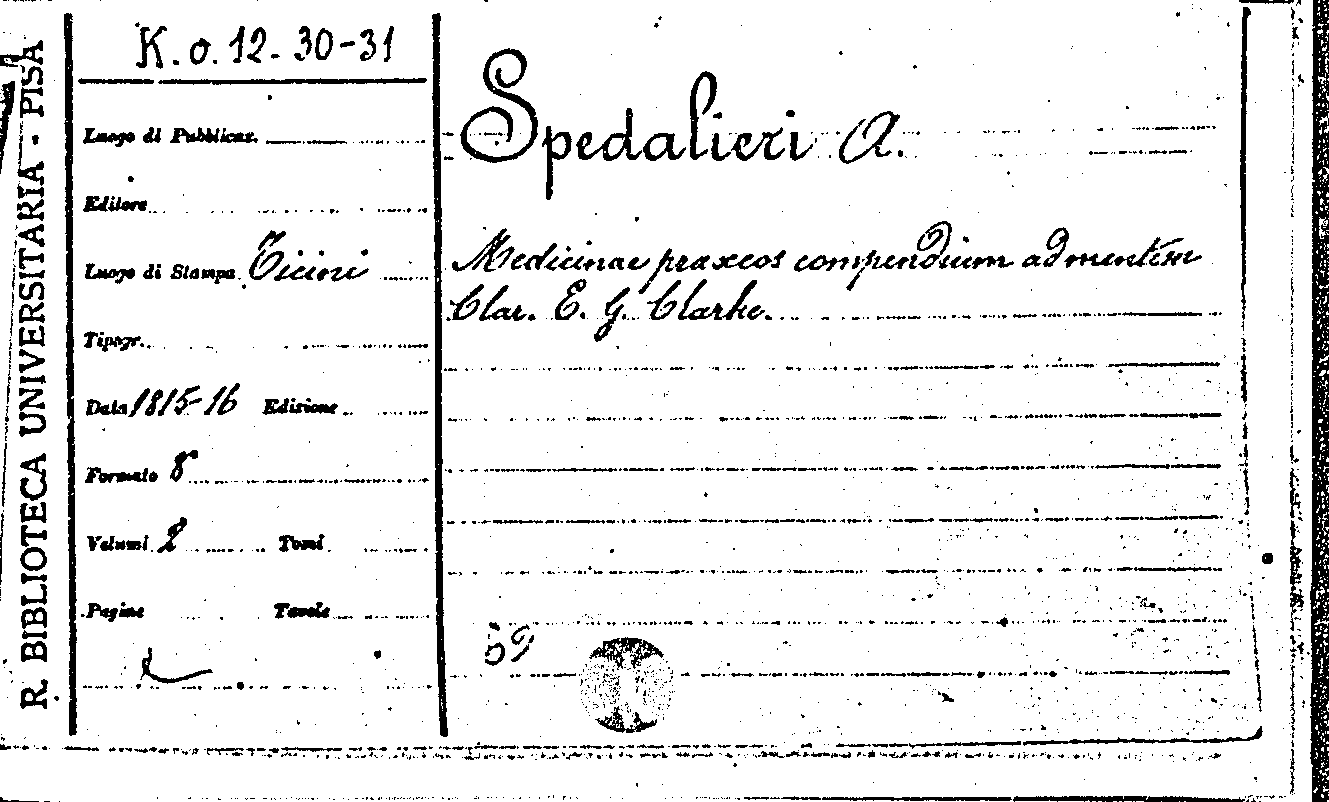 R. BIBLIOTECA UNIVERSITARIA - PISA
K. o. 12. 30-31
Luogo di Pubblicaz.
Editore
Luogo di Stampa Ticini
Tipogr.
Data 1815-16 Edizione
Formato 8°
Volumi 2 Tomi
Pagine Tavole
Spedalieri A.
Medicinae praxeos compendium ad mentem
Clar. E. G. Clarke.
59